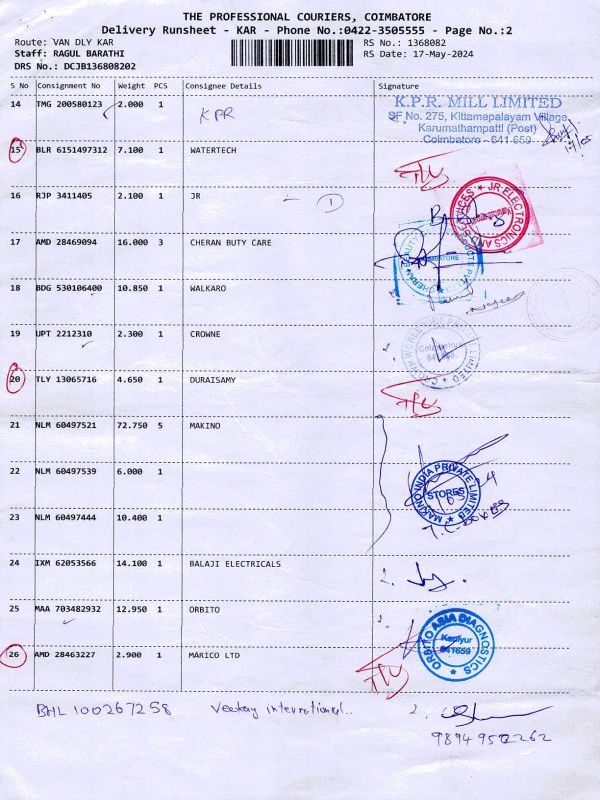 THE PROFESSIONAL COURIERS, COIMBATORE
Delivery Runsheet - KAR - Phone No.:0422-3505555 - Page No.:2
Route: VAN DLY KAR
Staff: RAGUL BARATHI
DRS No.: DCJB136808202
RS No.: 1368082
RS Date: 17-May-2024
S No Consignment No Weight PCS Consignee Details Signature
14 TMG 200580123 2.000 1 KPR
K.P.R. MILL LIMITED
SF No. 275, Kittampalayam Village,
Karumathampatti (Post)
Coimbatore - 641 659
15 BLR 6151497312 7.100 1 WATERTECH
16 RJP 3411405 2.100 1 JR 1
JR ELECTRONICS AND SERVICES
17 AMD 28469094 16.000 3 CHERAN BUTY CARE
18 BDG 530106400 10.850 1 WALKARO
19 UPT 2212310 2.300 1 CROWNE
20 TLY 13065716 4.650 1 DURAISAMY
21 NLM 60497521 72.750 5 MAKINO
22 NLM 60497539 6.000 1
MAKINO INDIA PRIVATE LIMITED
STORES
23 NLM 60497444 10.400 1
24 IXM 62053566 14.100 1 BALAJI ELECTRICALS
25 MAA 703482932 12.950 1 ORBITO
ORBITO ASIA DIAGNOSTICS
Kaniyur
641659
26 AMD 28463227 2.900 1 MARICO LTD
BHL 100267258 Veekay international..
9894952262